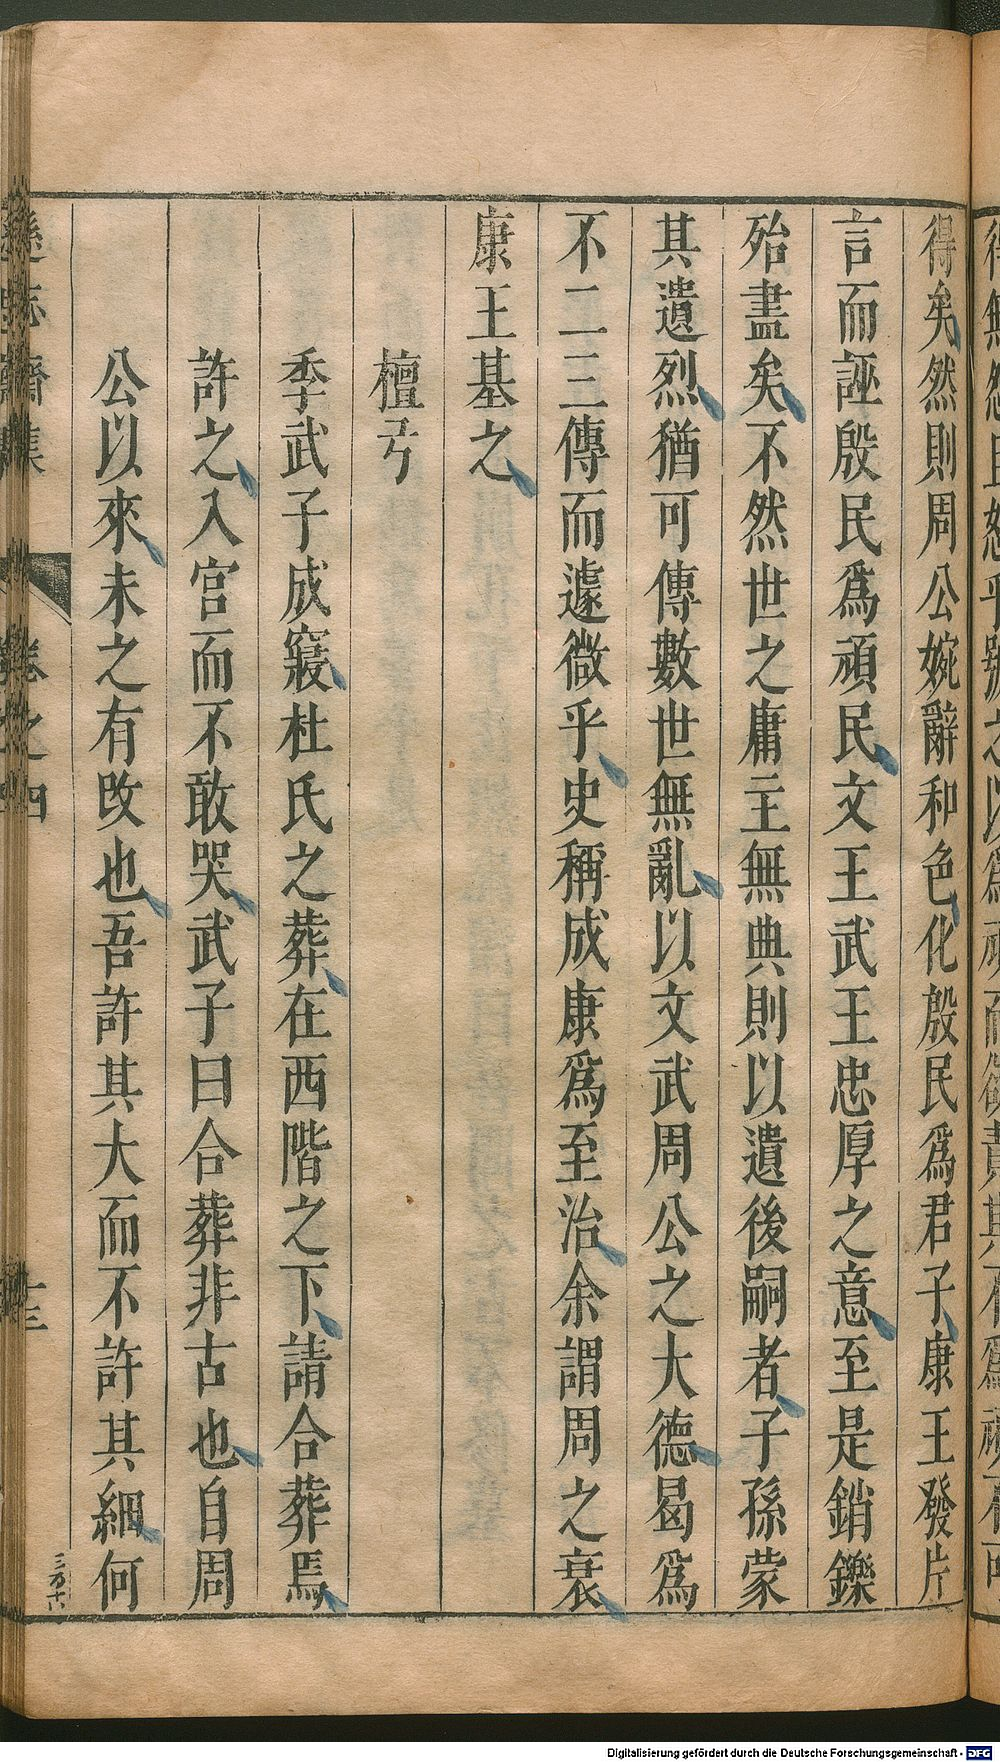 得矣然則周公婉辭和色化殷民爲君子康王發片
言而誣殷民爲頑民文王武王忠厚之意至是銷鑠
殆盡矣不然世之庸主無典則以遺後嗣者子孫蒙
其遺烈猶可傳數世無亂以文武周公之大德曷爲
不二三傳而遽微乎史稱成康爲至治余謂周之衰
康王基之
檀弓
季武子成寢杜氏之葬在西階之下請合葬焉
許之入宮而不敢哭武子曰合葬非古也自周
公以來未之有改也吾許其大而不許其細何
遜志齋集
卷之四
十三
Digitalisierung gefördert durch die Deutsche Forschungsgemeinschaft - DFG